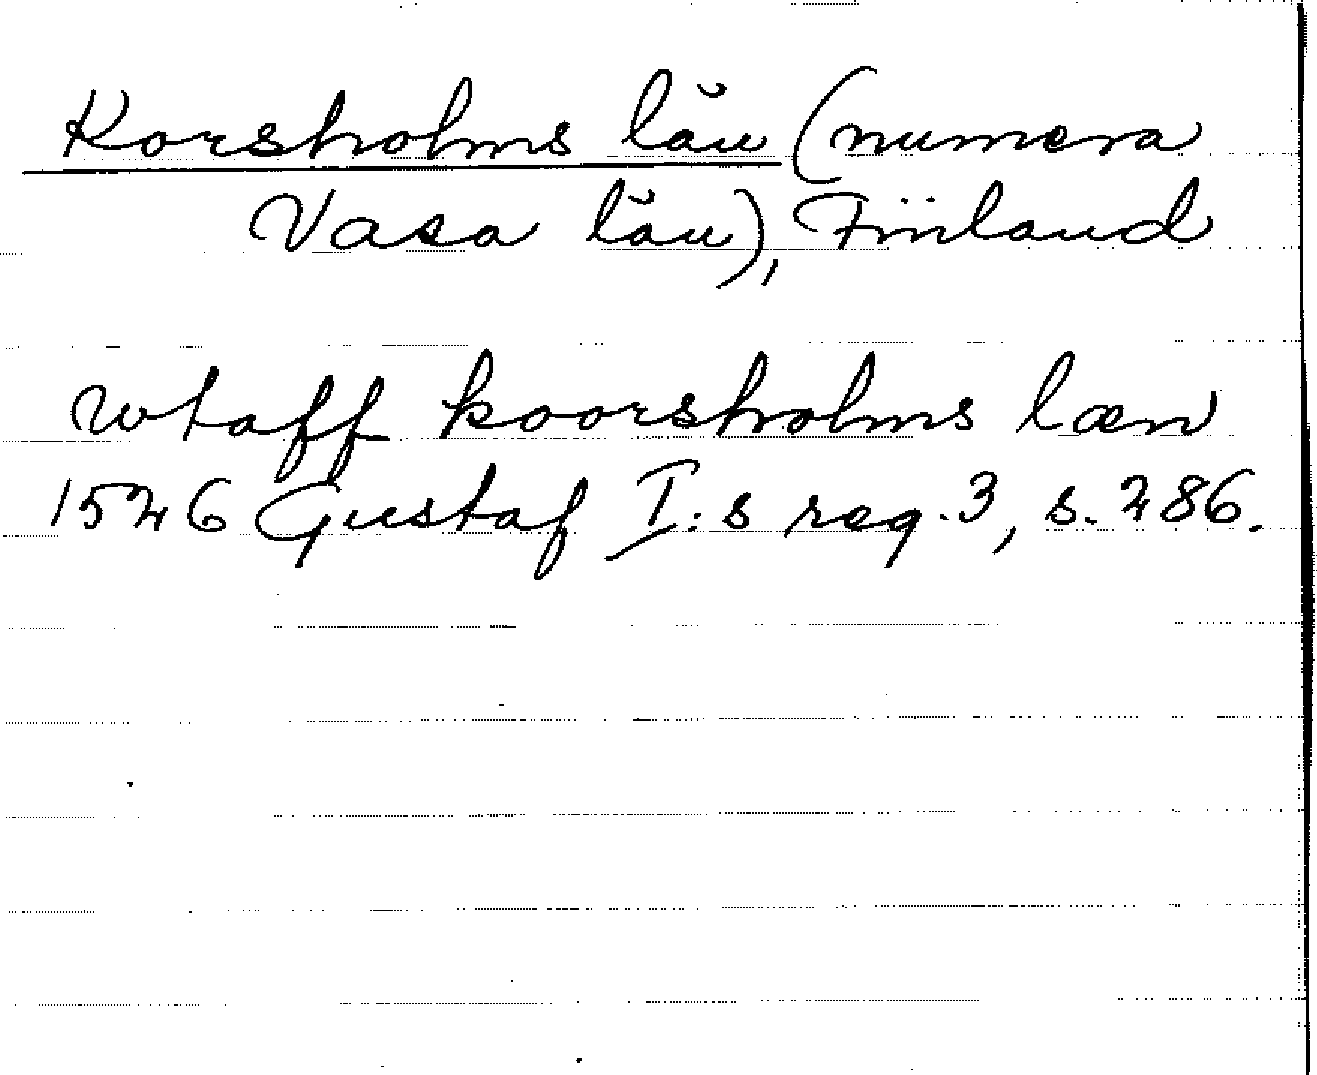 Korsholms län (numera
Vasa län), Finland
wtaff koorsholms læn
1526 Gustaf I:s reg. 3, s. 286.